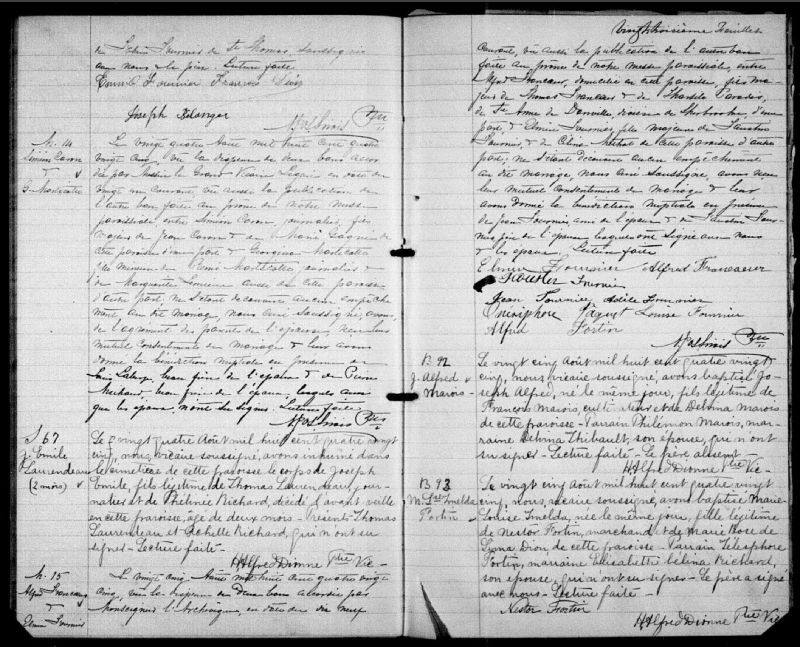 de Ste Thomas, soussignés
Lecture faite
Joseph Bélanger
Ptre
M. 14
Simon Caron
&
Le vingt quatre Août mil huit cent quatre
vingt cinq, vu la dispense de deux bans accor
vingt un courant, vu aussi la publication de
l'autre ban faite au prône de notre messe
paroissiale entre Simon Caron, journalier, fils
majeur de Jean Caron & de Marie Gagné de
cette paroisse d'une part & Georgina
fille mineure de journalier &
de Marguerite Lemieux aussi de cette paroisse
d'autre part. Ne s'étant découvert aucun empêche
ment au dit mariage, nous curé soussigné, avons,
de l'agrément des parents de l'épouse, reçu leur
mutuel consentement de mariage & leur avons
donné la bénédiction nuptiale en présence de
beau frère de l'époux & de Pierre
beau frère de l'épouse lesquels ainsi
que les époux n'ont su signer. Lecture faite
Ptre
S 67
J. Emile
Laurendeau
(2 mois)
Le vingt quatre Août mil huit cent quatre vingt
cinq, nous, vicaire soussigné, avons inhumé dans
le cimetière de cette paroisse le corps de Joseph
Emile, fils légitime de Thomas Laurendeau, jour-
nalier et de Philinée Richard, décédé l'avant veille
en cette paroisse, âgé de deux mois - Présents Thomas
Laurendeau et Richard, qui n'ont su
signer - Lecture faite -
H Alfred Dionne Ptre Vic -
M. 15
Alfred Francoeur
&
Elmire Fournier
Le vingt cinq Août mil huit cent quatre vingt
cinq, vu la dispense de deux bans accordée par
Monseigneur l'Archevêque, en date du dix neuf
Vingt troisième Feuillet
courant, vu aussi la publication de l'autre ban
faite au prône de notre messe paroissiale, entre
Alfred Francoeur, domicilié en cette paroisse, fils ma-
jeur de Thomas Francoeur & de Paradis,
de Ste Anne de Danville, diocèse de Sherbrooke d'une
part, & Elmire Fournier, fille majeure de
Fournier, & de Michel de cette paroisse d'autre
part; ne s'étant découvert aucun empêchement
au dit mariage, nous curé soussigné, avons reçu
leur mutuel consentement de mariage & leur
avons donné la bénédiction nuptiale en présence
de Jean Fournier ami de l'époux & de Four-
nier père de l'épouse lesquels ont signé avec nous
& les époux. Lecture faite
Elmire Fournier Alfred Francoeur
Fournier
Jean Fournier Adèle Fournier
Onésiphore Paquet Louise Fournier
Alfred Fortin
Ptre
B. 92
J. Alfred
Marois -
Le vingt cinq Août mil huit cent quatre vingt
cinq, nous, vicaire soussigné, avons baptisé Jo-
seph Alfred, né le même jour, fils légitime de
François Marois, cultivateur et de Delvina Marois
de cette paroisse - Parrain Philémon Marois, mar-
raine Delvina Thibault, son épouse, qui n'ont
su signer - Lecture faite - Le père absent -
H Alfred Dionne Ptre Vic -
B. 93
M. Lse Imelda
Fortin
Le vingt cinq Août mil huit cent quatre vingt
cinq, nous, vicaire soussigné, avons baptisé Marie
Louise Imelda, née le même jour, fille légitime
de Nestor Fortin, marchand et de Marie Rose de
Lima Dion de cette paroisse - Parrain Télesphore
Fortin, marraine Elisabeth Célina Richard,
son épouse, qui n'ont su signer - Le père a signé
avec nous - Lecture faite -
Nestor Fortin
H Alfred Dionne Ptre Vic